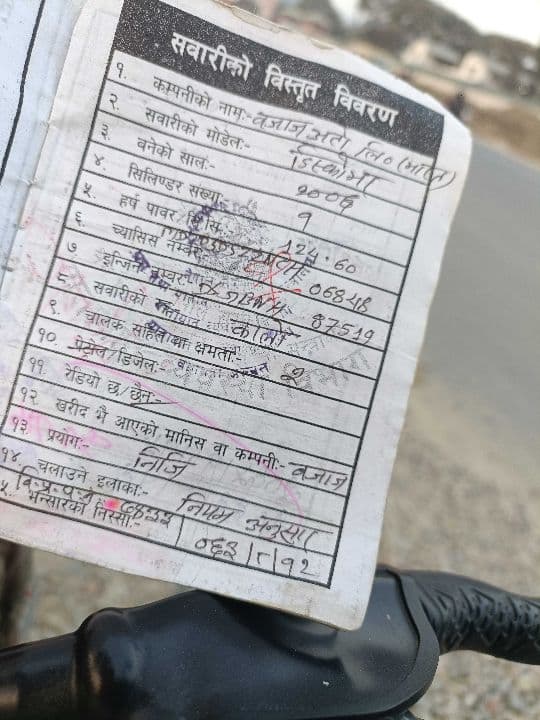 सवारीको विस्तृत विवरण
१. कम्पनीको नाम:- बजाज अटो लि० (भारत)
२. सवारीको मोडेल:- डिस्कोभर
३. बनेको साल:- २००६
४. सिलिण्डर संख्या १
५. हर्ष पावर सि.सि. १२४.६०
६. च्यासिस नम्बर 06848
७ इन्जिन नम्बर 87519
८. सवारीको कालो
९. चालक सहित वा क्षमता:- २
१०. पेट्रोल/डिजेल:-
११. रेडियो छ/छैन:-
१२. खरीद भै आएको मानिस वा कम्पनी:- बजाज
१३. प्रयोग:- निजि
१४. चलाउने इलाका:- नियम अनुसार
भन्सारको निस्सा:- ०६३/८/१२